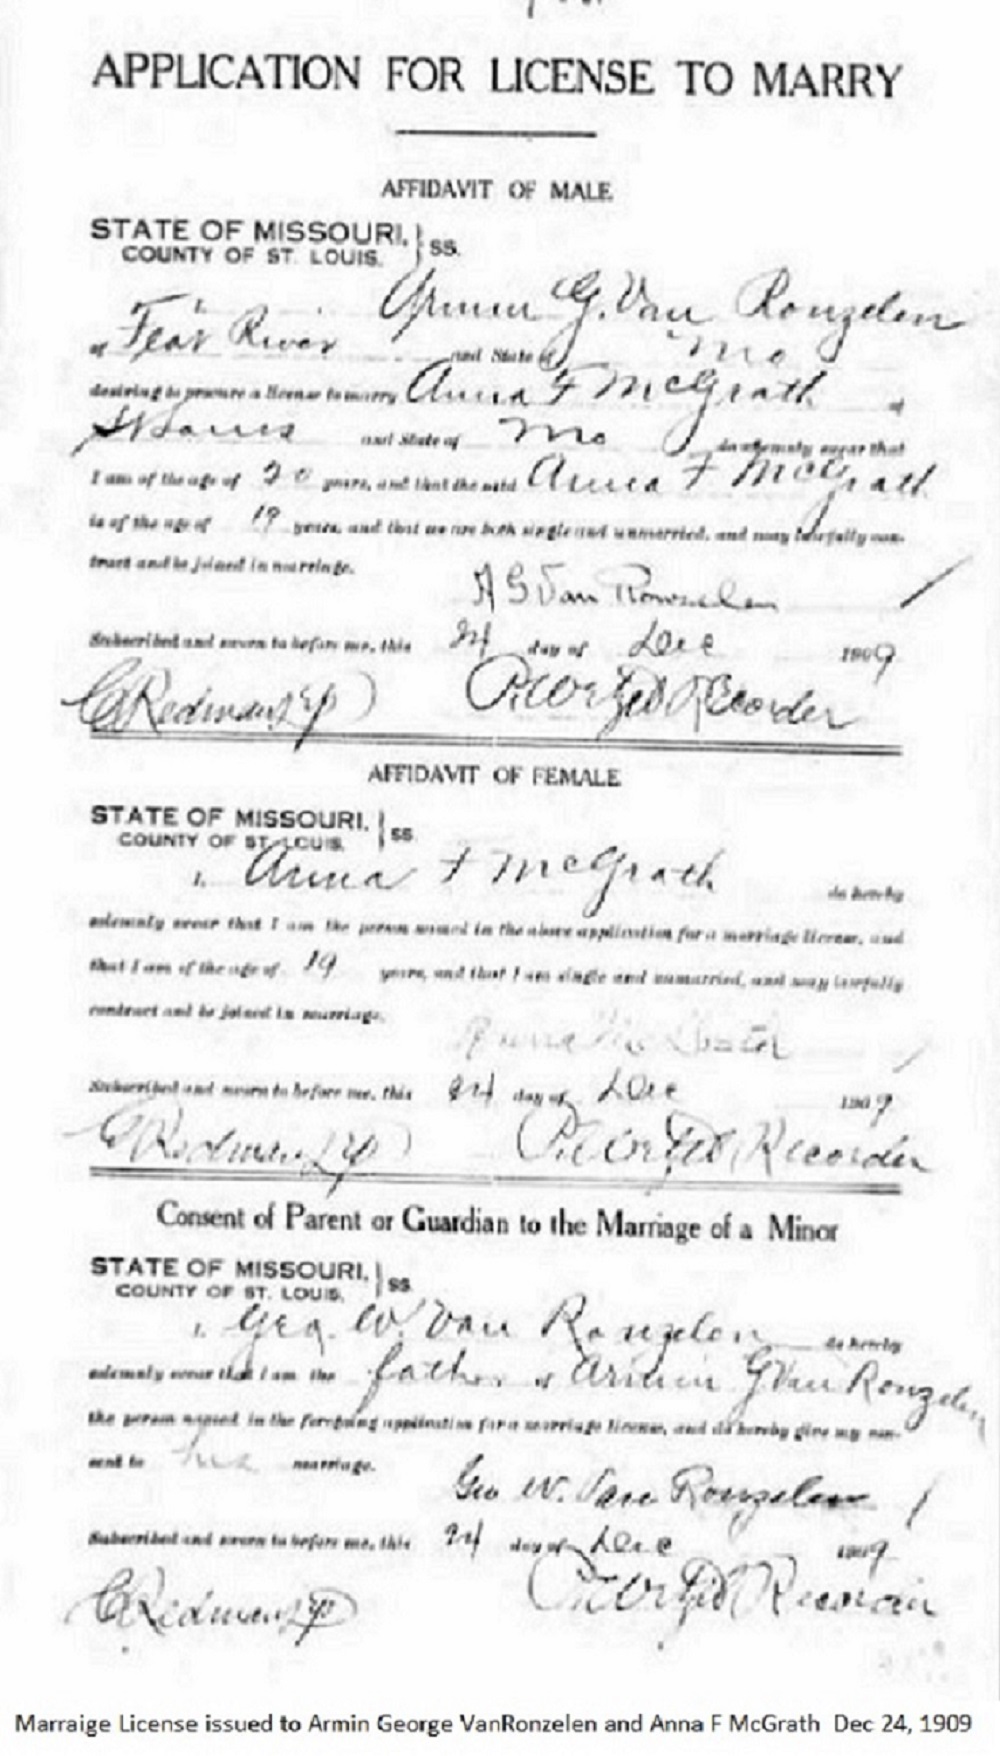 APPLICATION FOR LICENSE TO MARRY
AFFIDAVIT OF MALE
STATE OF MISSOURI, } SS.
COUNTY OF ST. LOUIS.
I, Armin G. Van Ronzelen
of River and State of Mo
desiring to procure a license to marry Anna F McGrath of
St Louis and State of Mo do solemnly swear that
I am of the age of 20 years, and that the said Anna F McGrath
is of the age of 19 years, and that we are both single and unmarried, and may lawfully con-
tract and be joined in marriage.
A G Van Ronzelen
Subscribed and sworn to before me, this 24 day of Dec 1909
Redman Recorder
AFFIDAVIT OF FEMALE
STATE OF MISSOURI, } SS
COUNTY OF ST. LOUIS.
I, Anna F McGrath do hereby
solemnly swear that I am the person named in the above application for a marriage license, and
that I am of the age of 19 years, and that I am single and unmarried, and may lawfully
contract and be joined in marriage.
Anna
Subscribed and sworn to before me, this 24 day of Dec 1909
Redman Recorder
Consent of Parent or Guardian to the Marriage of a Minor
STATE OF MISSOURI, } SS
COUNTY OF ST. LOUIS,
I, Geo. W. Van Ronzelen do hereby
solemnly swear that I am the father of Armin G Van Ronzelen
the person named in the foregoing application for a marriage license, and do hereby give my con-
sent to his marriage.
Geo W. Van Ronzelen
Subscribed and sworn to before me, this 24 day of Dec 1909
Redman Recorder
Marraige License issued to Armin George VanRonzelen and Anna F McGrath Dec 24, 1909